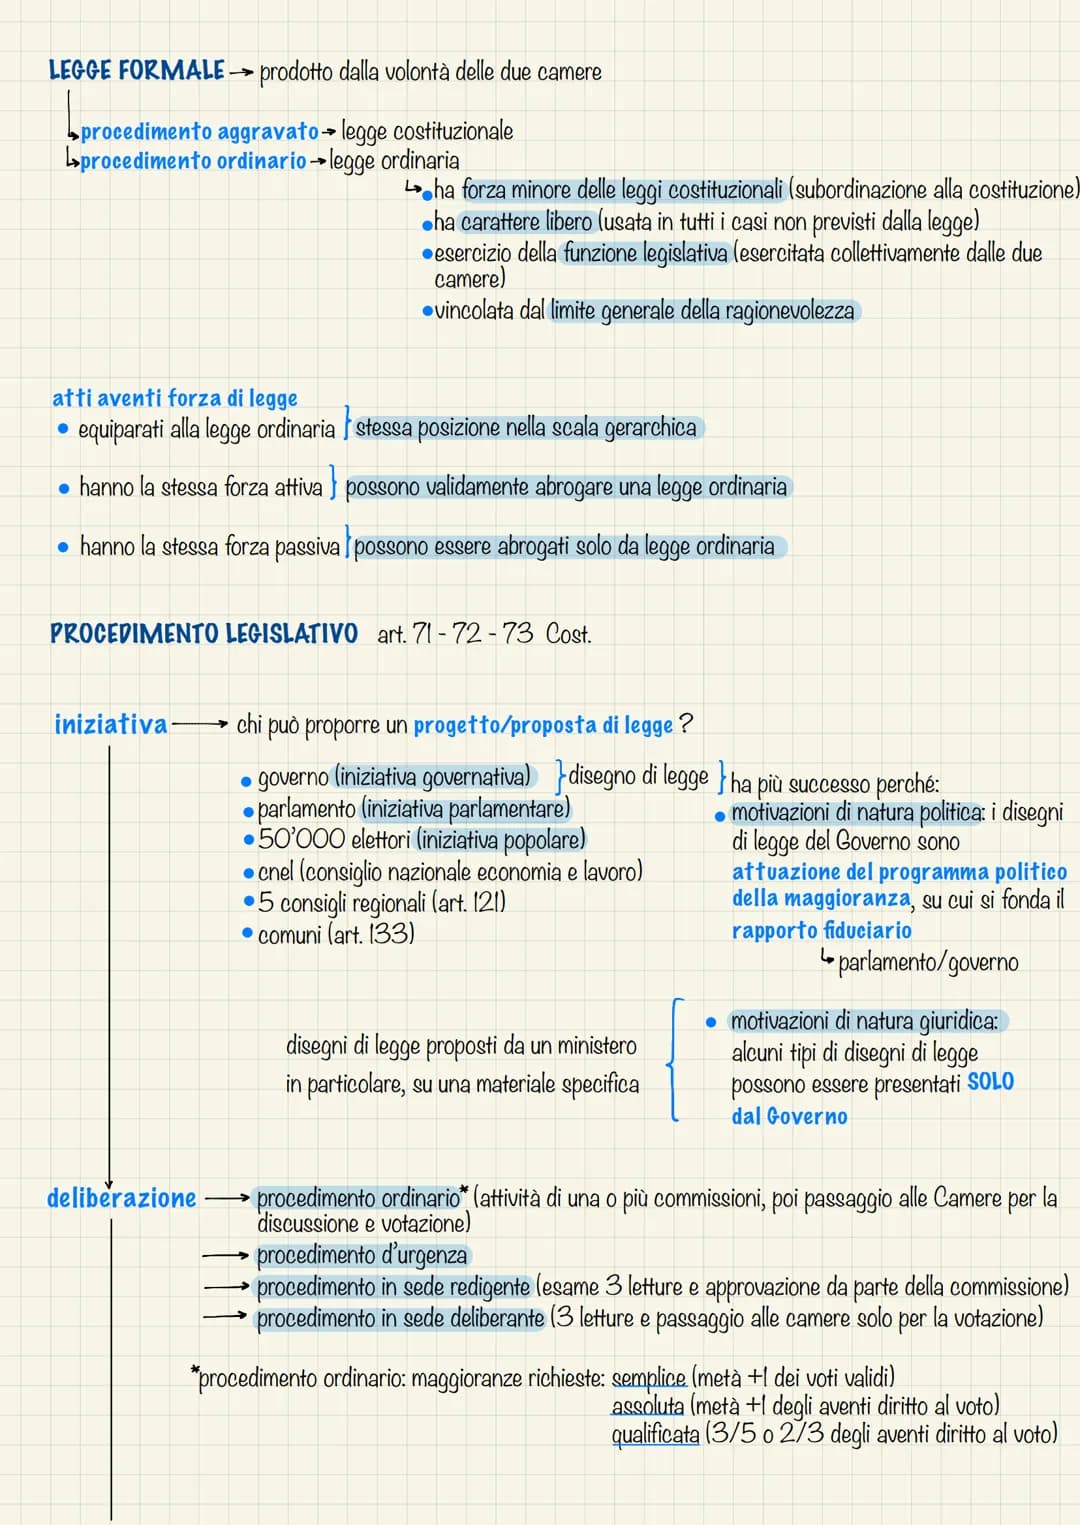 LEGGE FORMALE → prodotto dalla volontà delle due camere
procedimento aggravato → legge costituzionale
procedimento ordinario → legge ordinaria
ha forza minore delle leggi costituzionali (subordinazione alla costituzione)
ha carattere libero (usata in tutti i casi non previsti dalla legge)
esercizio della funzione legislativa (esercitata collettivamente dalle due
camere)
vincolata dal limite generale della ragionevolezza
atti aventi forza di legge
• equiparati alla legge ordinaria } stessa posizione nella scala gerarchica
• hanno la stessa forza attiva } possono validamente abrogare una legge ordinaria
• hanno la stessa forza passiva } possono essere abrogati solo da legge ordinaria
PROCEDIMENTO LEGISLATIVO art. 71 - 72 - 73 Cost.
iniziativa → chi può proporre un progetto/proposta di legge ?
• governo (iniziativa governativa) } disegno di legge }
• parlamento (iniziativa parlamentare)
• 50'000 elettori (iniziativa popolare)
• cnel (consiglio nazionale economia e lavoro)
• 5 consigli regionali (art. 121)
• comuni (art. 133)
ha più successo perché:
• motivazioni di natura politica: i disegni
di legge del Governo sono
attuazione del programma politico
della maggioranza, su cui si fonda il
rapporto fiduciario
parlamento/governo
disegni di legge proposti da un ministero
in particolare, su una materiale specifica
• motivazioni di natura giuridica:
alcuni tipi di disegni di legge
possono essere presentati SOLO
dal Governo
deliberazione → procedimento ordinario* (attività di una o più commissioni, poi passaggio alle Camere per la
discussione e votazione)
→ procedimento d'urgenza
→ procedimento in sede redigente (esame 3 letture e approvazione da parte della commissione)
→ procedimento in sede deliberante (3 letture e passaggio alle camere solo per la votazione)
*procedimento ordinario: maggioranze richieste: semplice (metà +1 dei voti validi)
assoluta (metà +1 degli aventi diritto al voto)
qualificata (3/5 o 2/3 degli aventi diritto al voto)